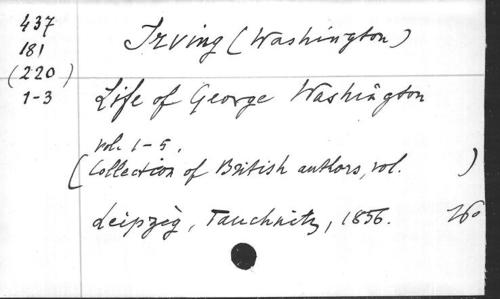 437
181
(220)
1-3
Irving (Washington)
Life of George Washington
vol. 1-5.
(Collection of British authors, vol. )
Leipzig, Tauchnitz, 1856.